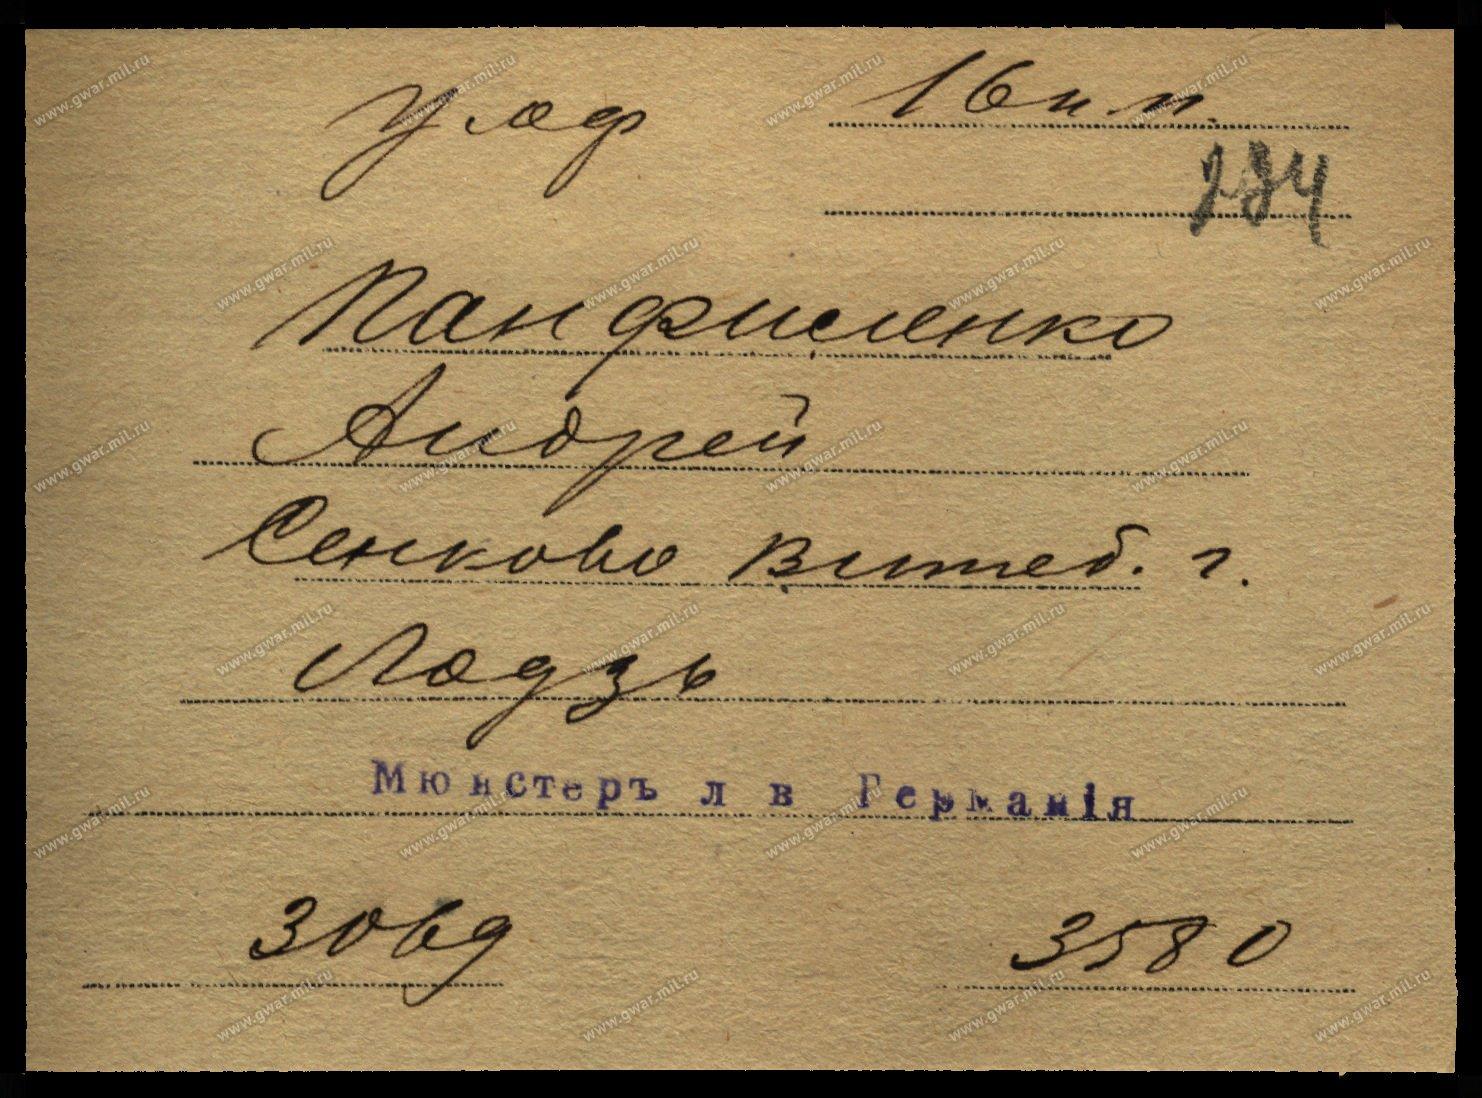 уоф 16 п п.
284
Панфиленко
Андрей
Сенково Витеб. г.
Лодзь
Мюнстеръ л в Германія
3069 3580
www.gwar.mil.ru